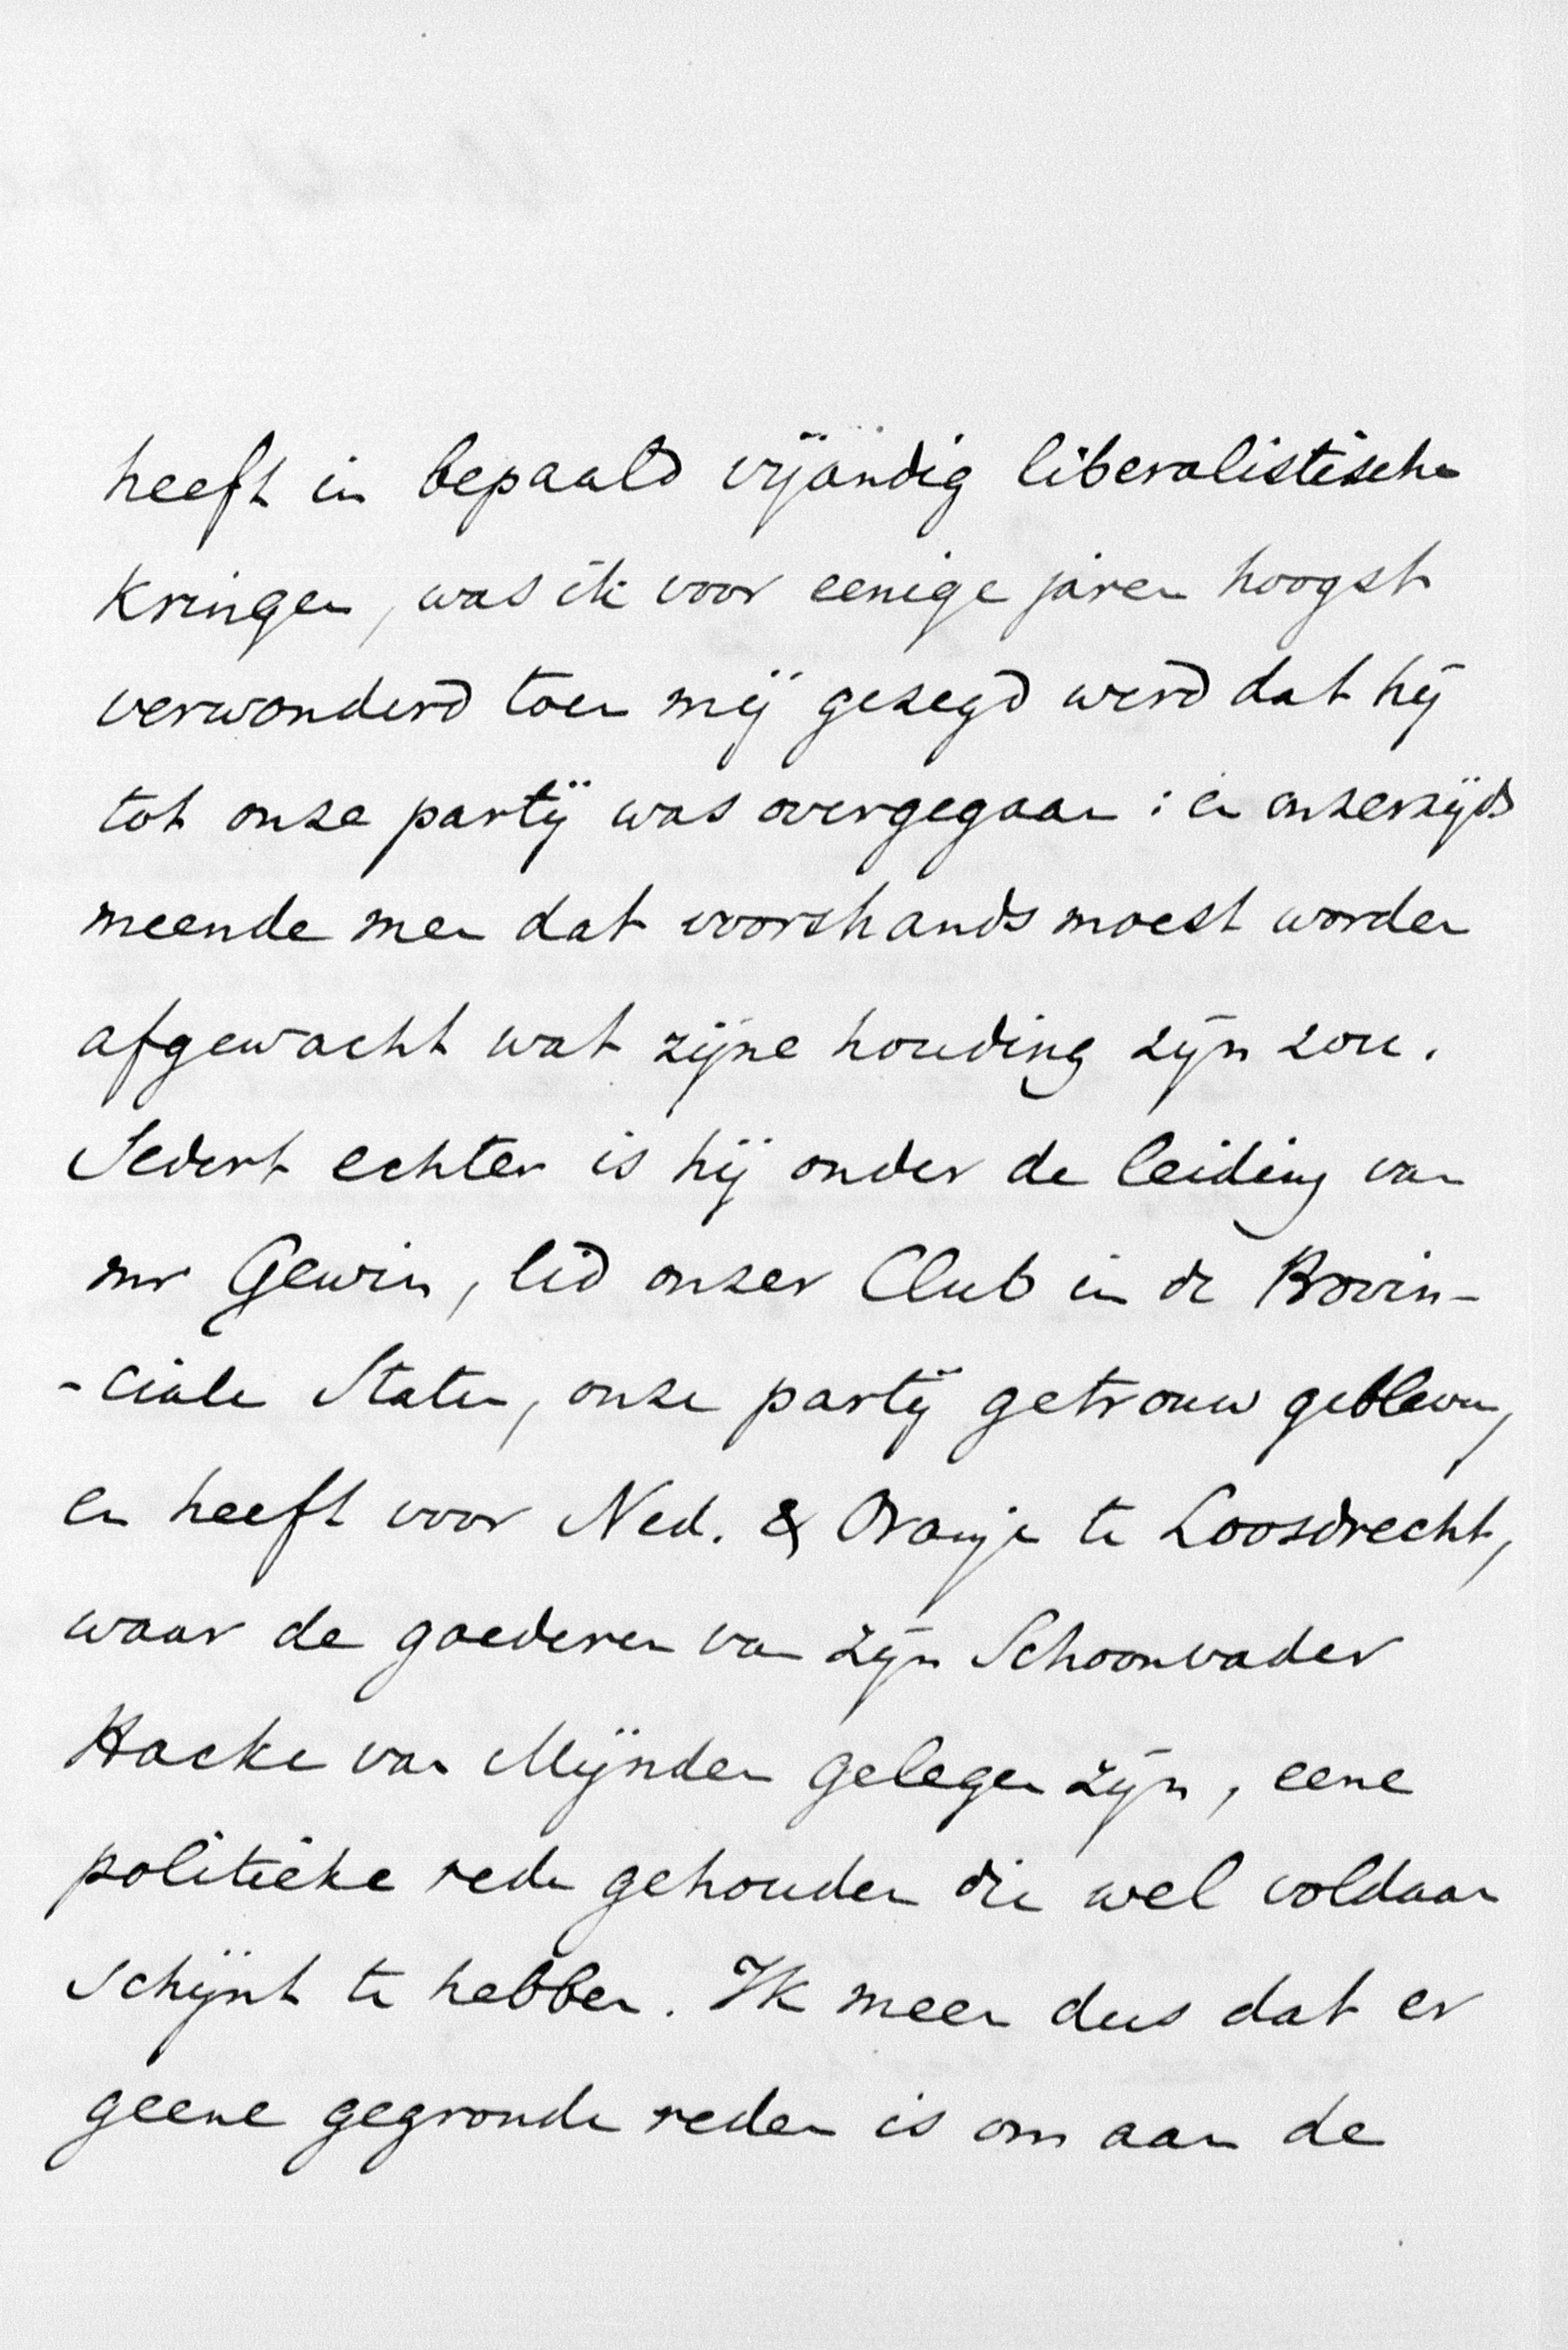 heeft in bepaald vijandig liberalistische
kringen, was ik voor eenige jaren hoogst
verwonderd toen mij gezegd werd dat hij
tot onze partij was overgegaan : en onzerzijds
meende men dat voorshands moest worden
afgewacht wat zijne houding zijn zou.
Sedert echter is hij onder de leiding van
mr Gewin, lid onzer Club in de Provin-
-ciale Staten, onze partij getrouw gebleven,
en heeft voor Ned. & Oranje te Loosdrecht,
waar de goederen van zijn Schoonvader
Hacke van Mijnden gelegen zijn, eene
politieke rede gehouden die wel voldaan
schijnt te hebben. Ik meen dus dat er
geene gegronde reden is om aan de